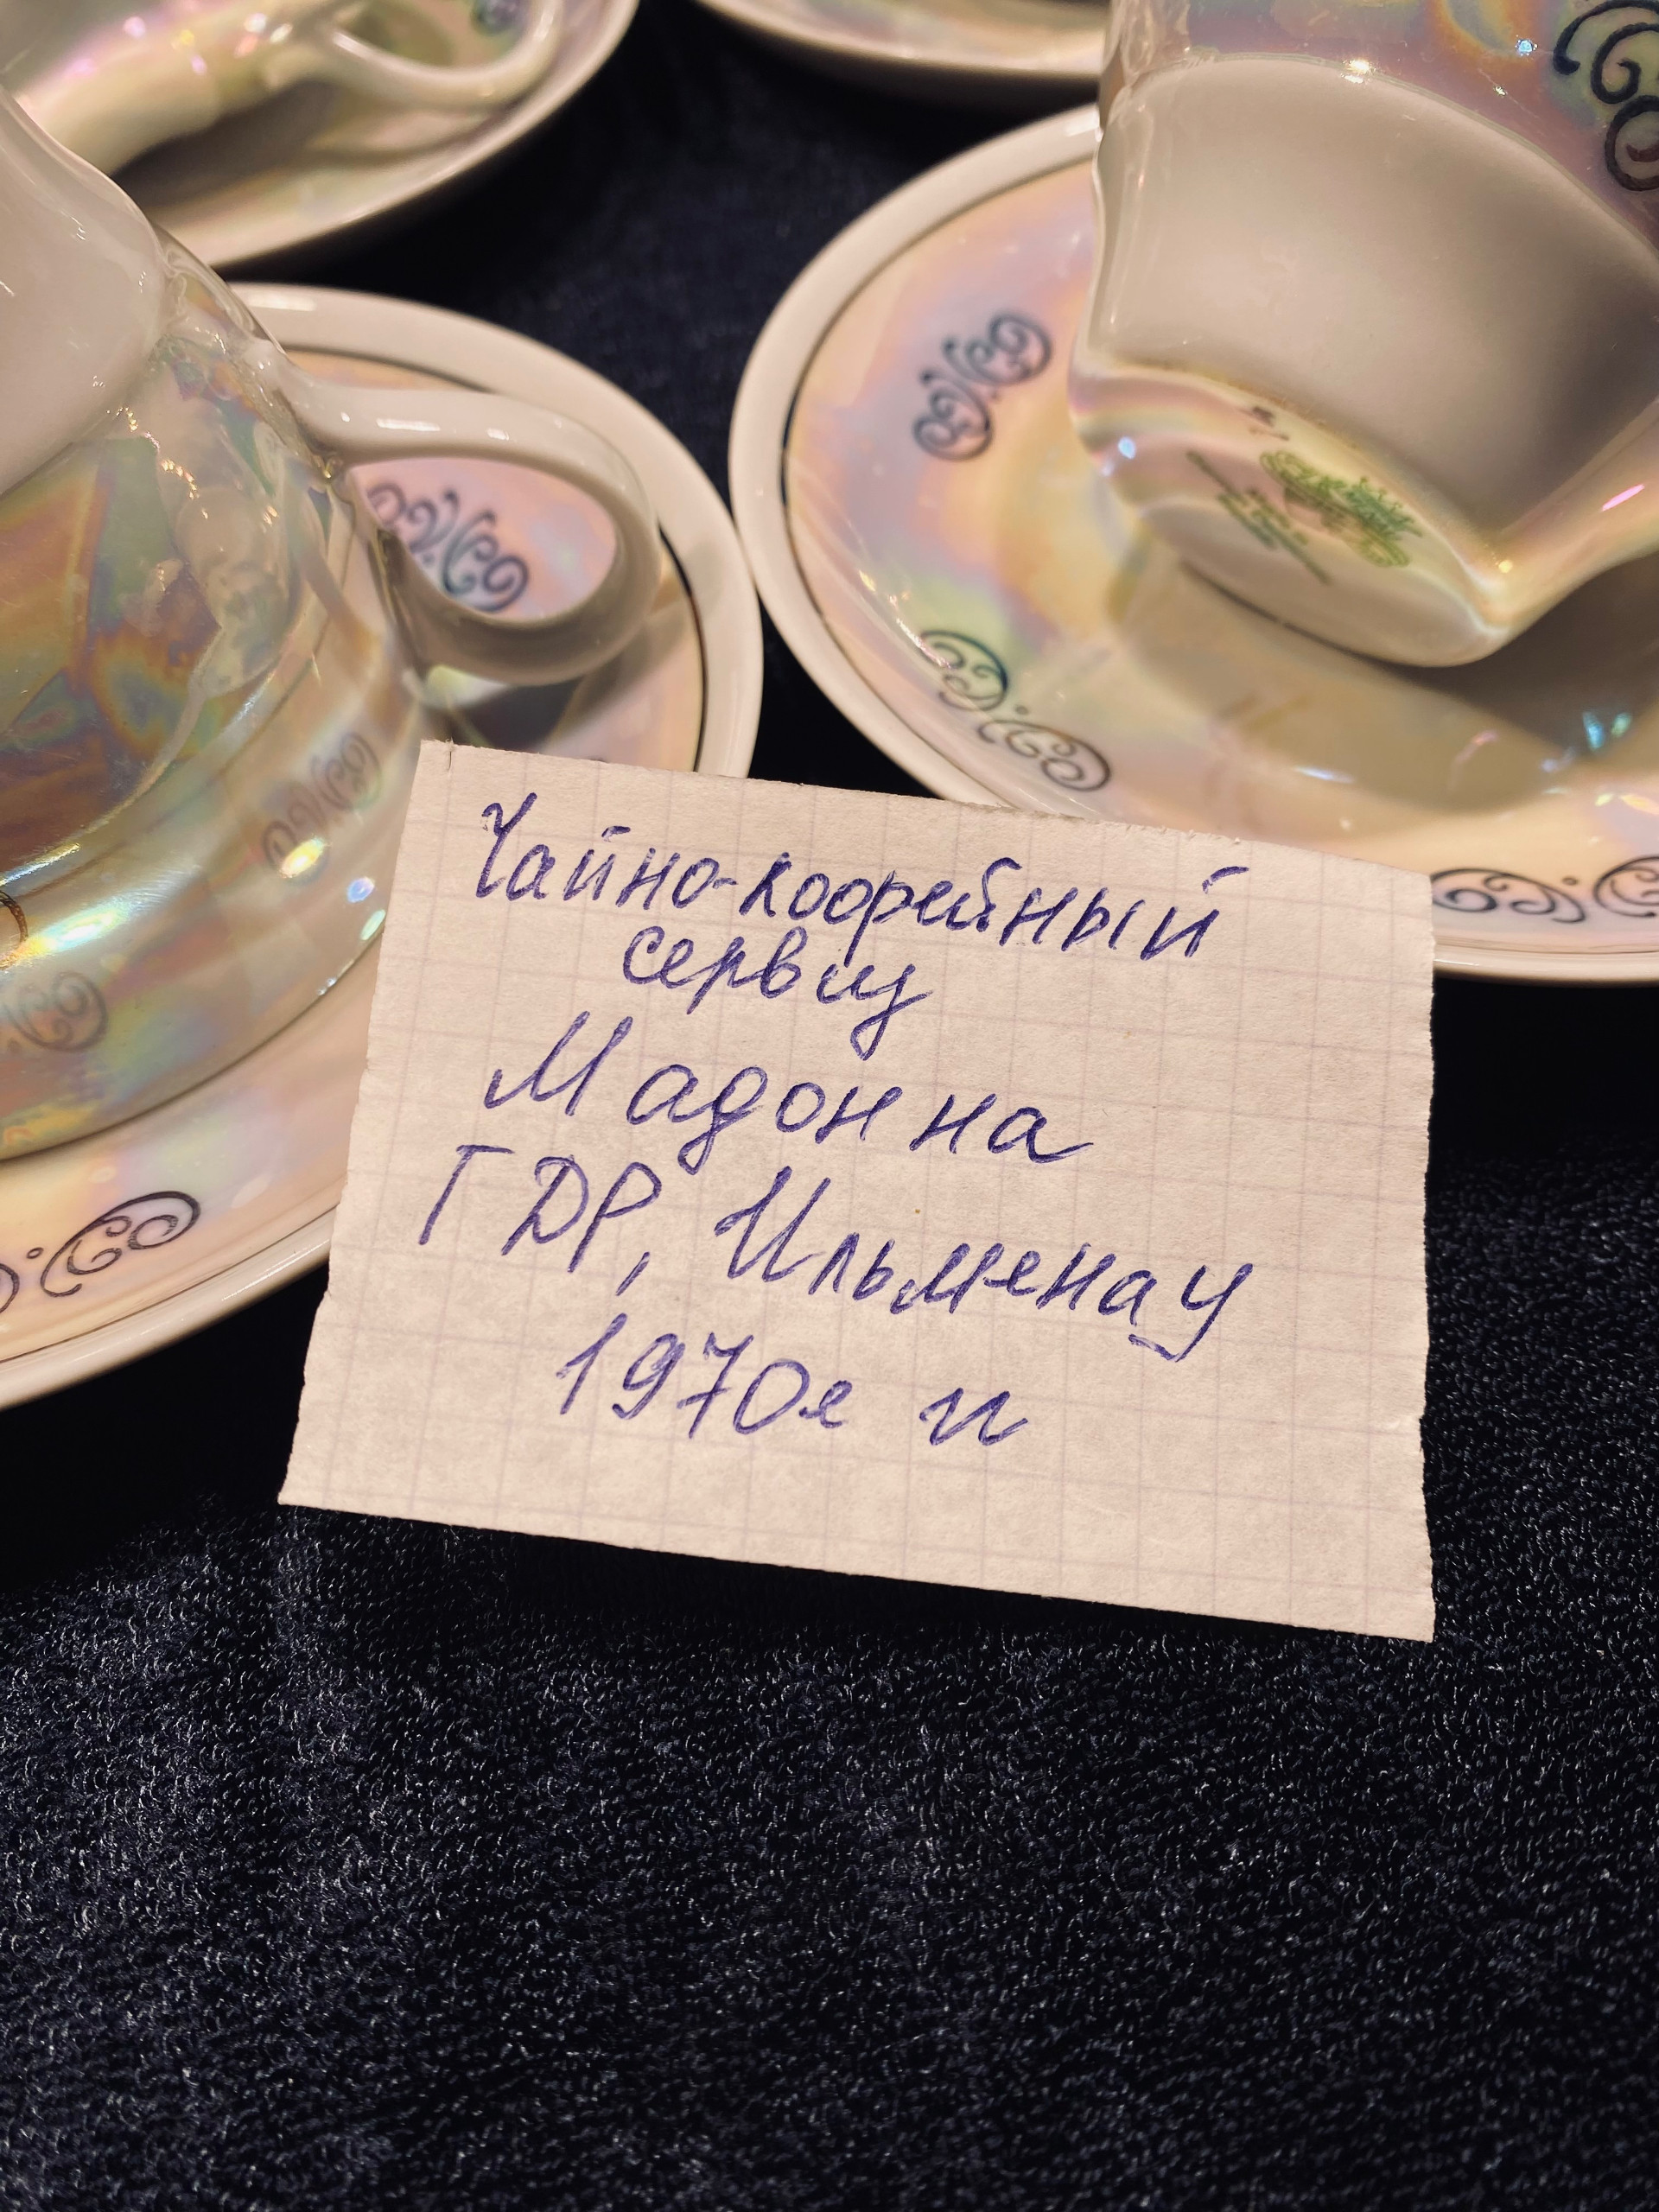 Чайно-кофейный
сервиз
Мадонна
ГДР, Ильменау
1970е и